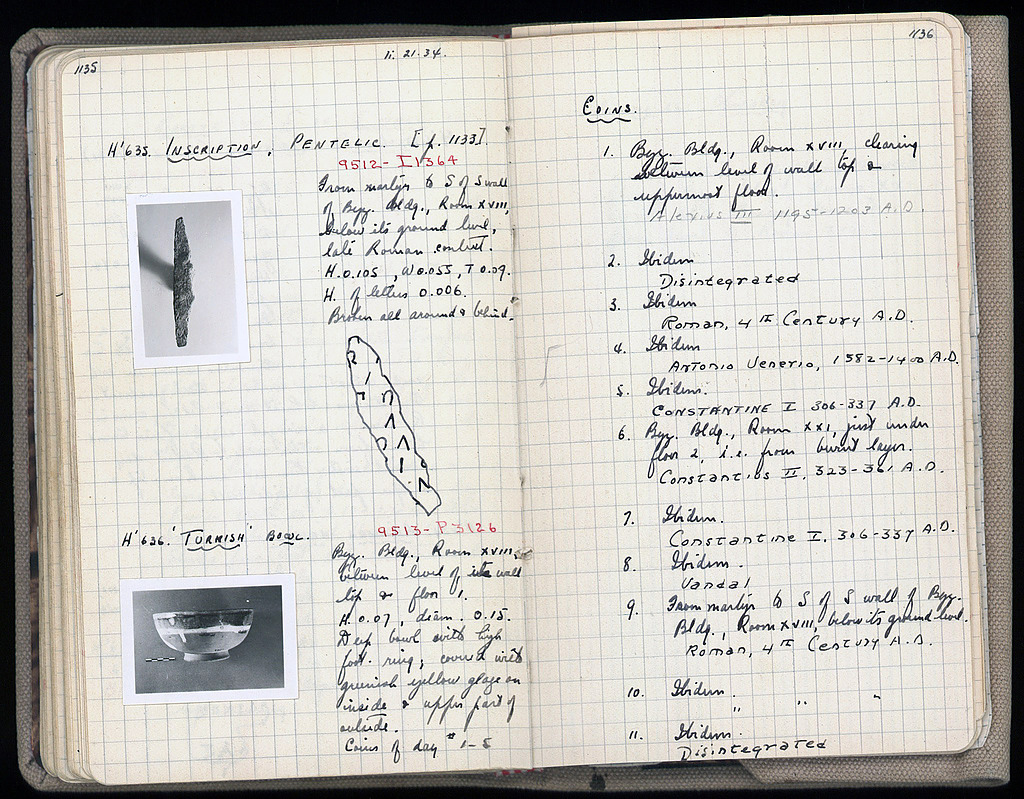 1135
ii. 21. 34.
H'635. INSCRIPTION, PENTELIC. [p. 1133]
9512 - I 1364
From martyr to S of S wall
of Byz. Bldg., Room XVIII,
below its ground level,
late Roman context.
H. 0.105, W 0.055, T 0.09.
H. of letters 0.006.
Broken all around & behind.
H'636. 'TURKISH' BOWL.
9513 - P 3126
Byz. Bldg., Room XVIII,
between level of its wall
top & floor 1.
H. 0.07, diam. 0.15.
Deep bowl with high
foot-ring; covered with
greenish yellow glaze on
inside & upper part of
outside.
Coins of day # 1-5
1136
COINS.
1. Byz. Bldg., Room XVIII, clearing
between level of wall top &
uppermost floor.
Alexius III 1195-1203 A.D.
2. Ibidem
Disintegrated
3. Ibidem
Roman, 4th Century A.D.
4. Ibidem
Antonio Venerio, 1382-1400 A.D.
5. Ibidem.
CONSTANTINE I 306-337 A.D.
6. Byz. Bldg., Room XXI, just under
floor 2, i.e. from burnt layer.
Constantius II, 323-361 A.D.
7. Ibidem.
Constantine I, 306-337 A.D.
8. Ibidem.
Vandal
9. From martyr to S of S wall of Byz.
Bldg., Room XVIII, below its ground level.
Roman, 4th Century A.D.
10. Ibidem.
" " "
11. Ibidem.
Disintegrated